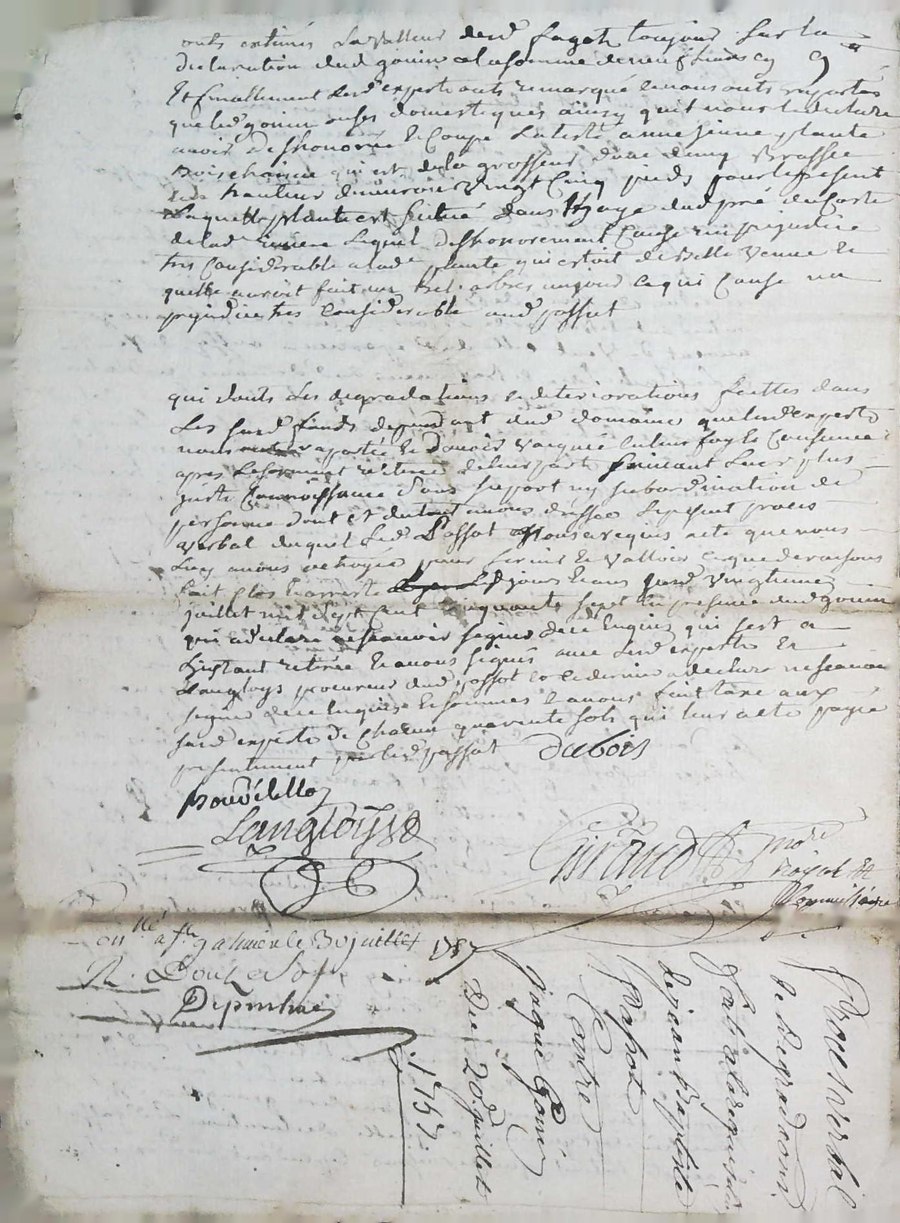 onts estimés la valleur desd fagots toujour sur la
declaration dud gonin a la somme de neuf livres cy 9ᴴ
Et finallement lesd experts onts remarqué et nous onts raportés
que led gonin ou ses domestiques ainsy qu'il nous la declaré
avoir deshonoré et coupé la teste a une jeune plante
bois chaine qui est de la grosseur d'une brassee
sa hauteur d'environ vingt cinq pieds pour le present
laquelle plante est situé dans dud pré du costé
de lad riviere lequel deshonorement cause un prejudice
tres considerable a lade plante qui estoit de belle venue et
quelle auroit fait un bel arbre un jour ce qui cause un
prejudice tres considerable aud passot
qui sonts les degradations et deteriorations faittes dans
les susd fonds dependant dud domaine que lesd experts
nous raportés et d'avoir vacqué en leur foy et conscience
apres le serment reiteré de leur part suivant leur plus
juste connoissance sans suport ny subordination de
personne dont et du tout avons dressé le present proces
verbal duquel led Passot nous a requis acte que nous
luy avons octroyé pour servir et valloir ce que de raison
fait clos et arresté les jours et ans susd vingtieme
juillet mil sept cent cinquante sept en presence dud gonin
qui a declaré ne scavoir signé de ce enquis qui s'est a
l'instant retiré et avons signés avec lesd experts et
Langloys procureur dud passot et ce dernier a declaré ne scavoir
signé de ce enquis et sommés et avons fait taxe aux
susd experts de chacun quarente sols qui leur a eté payé
presentement par led passot Dubois
Langloysse
Giraud
royal et
Commissaire
onlle a st galmier le 30 juillet 1757
R. Douze sols
Depinhac
Proces verbal
de degradaons
fait a la requisition
de jean Baptiste
Passot
Contre
jaque Gonin
Du 20 juillet
1757